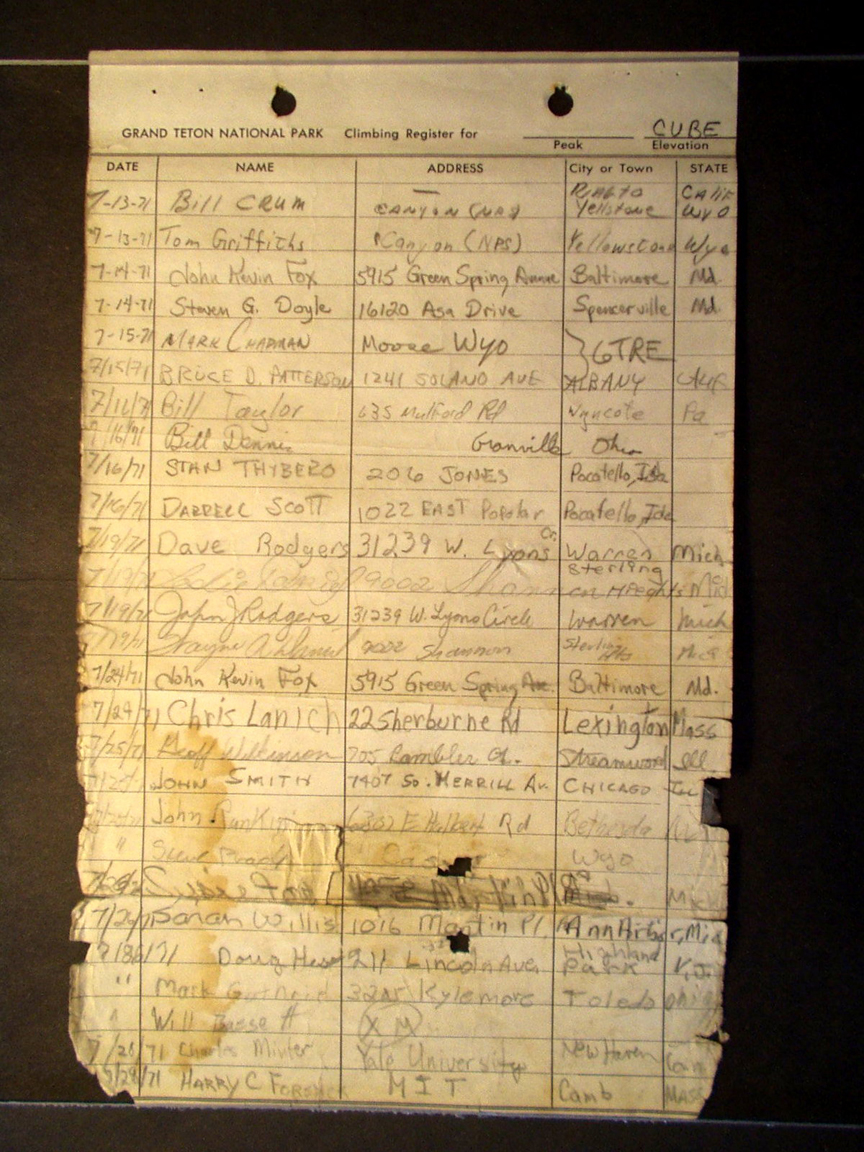 CUBE
GRAND TETON NATIONAL PARK Climbing Register for
Peak Elevation
DATE NAME ADDRESS City or Town STATE
7-13-71 Bill CRUM CANYON (NPS) Rialto Yellstone CALIF WYO
7-13-71 Tom Griffiths Canyon (NPS) Yellowstone Wyo
7-14-71 John Kevin Fox 5915 Green Spring Avenue Baltimore Md.
7-14-71 Steven G. Doyle 16120 Asa Drive Spencerville Md.
7-15-71 MARK CHAPMAN Moose Wyo GTRE
7/15/71 BRUCE D. PATTERSON 1241 SOLANO AVE ALBANY
Bill Taylor 635 Mulford Rd Wyncote Pa
7/16/71 Bill Dennis Granville Ohio
7/16/71 STAN THYBERO 206 JONES Pocatello, Ida
7/16/71 DARRELL SCOTT 1022 EAST Popolar Pocatello, Ida
7/19/71 Dave Rodgers 31239 W. Lyons Cr. Warren Mich
9002 Shannon Sterling Heights Mich
7/19/71 John J Rodgers 31239 W. Lyons Circle Warren Mich
7/19/71 Wayne A. Daniel 9002 Shannon Sterling Hts
7/24/71 John Kevin Fox 5915 Green Spring Ave. Baltimore Md.
7/24/71 Chris Lanich 22 Sherburne Rd Lexington Mass
7/25/71 Geoff Wilkinson 705 Rambler Ct. Streamwood Ill
JOHN SMITH 7407 So. MERRILL Av. CHICAGO Ill
John Rd Bethesda
" Steve Wyo
Mich
7/26/71 Sarah Willis 1016 Martin Pl. Ann Arbor, Mic
Doug 211 Lincoln Ave. Highland Park N.J.
" Mark 3215 Kylemore Toledo Ohio
" Will
7/28/71 Charles Minter Yale University New Haven Conn
7/28/71 HARRY C MIT Camb MASS